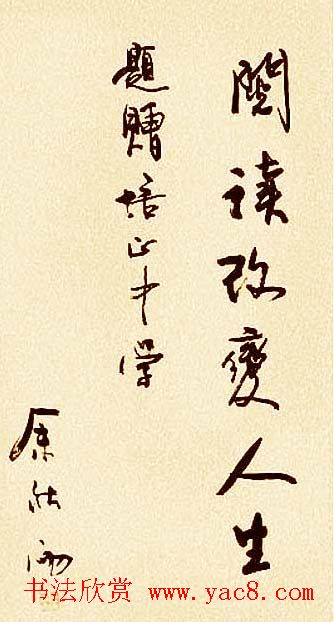 閱读改變人生
题贈培正中学
余秋雨
书法欣赏 www.yac8.com